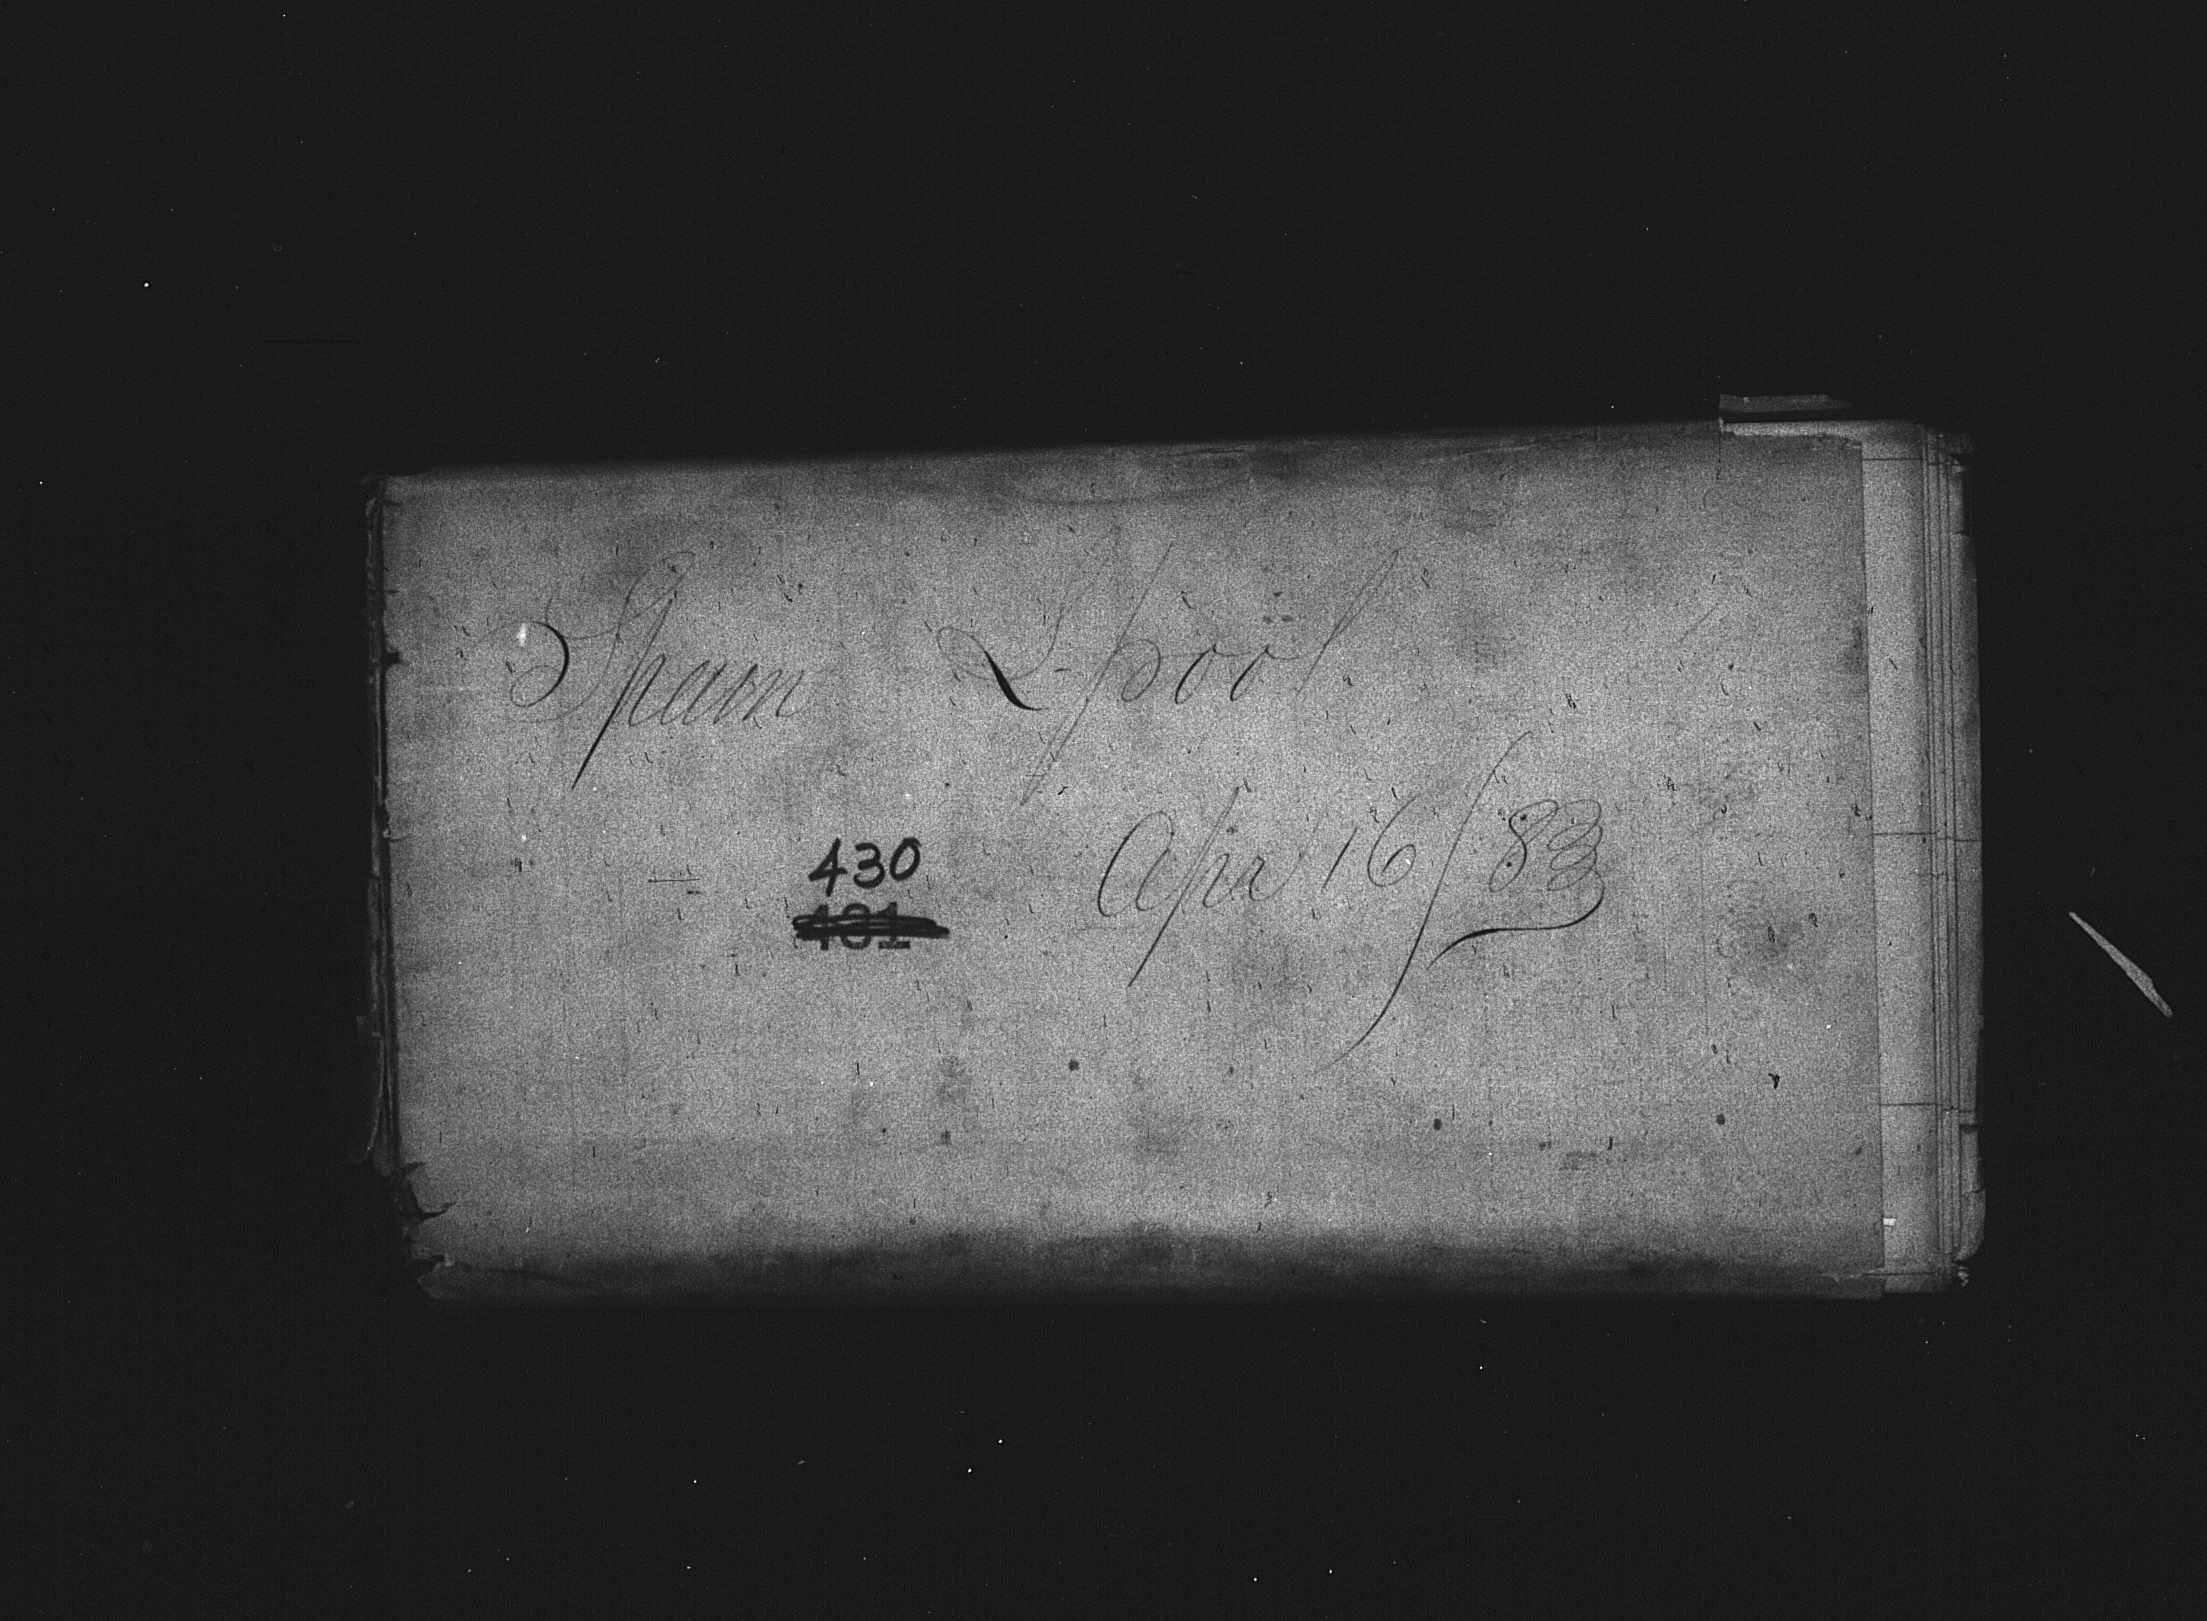 Spain L-pool
Apr 16/83
430
401